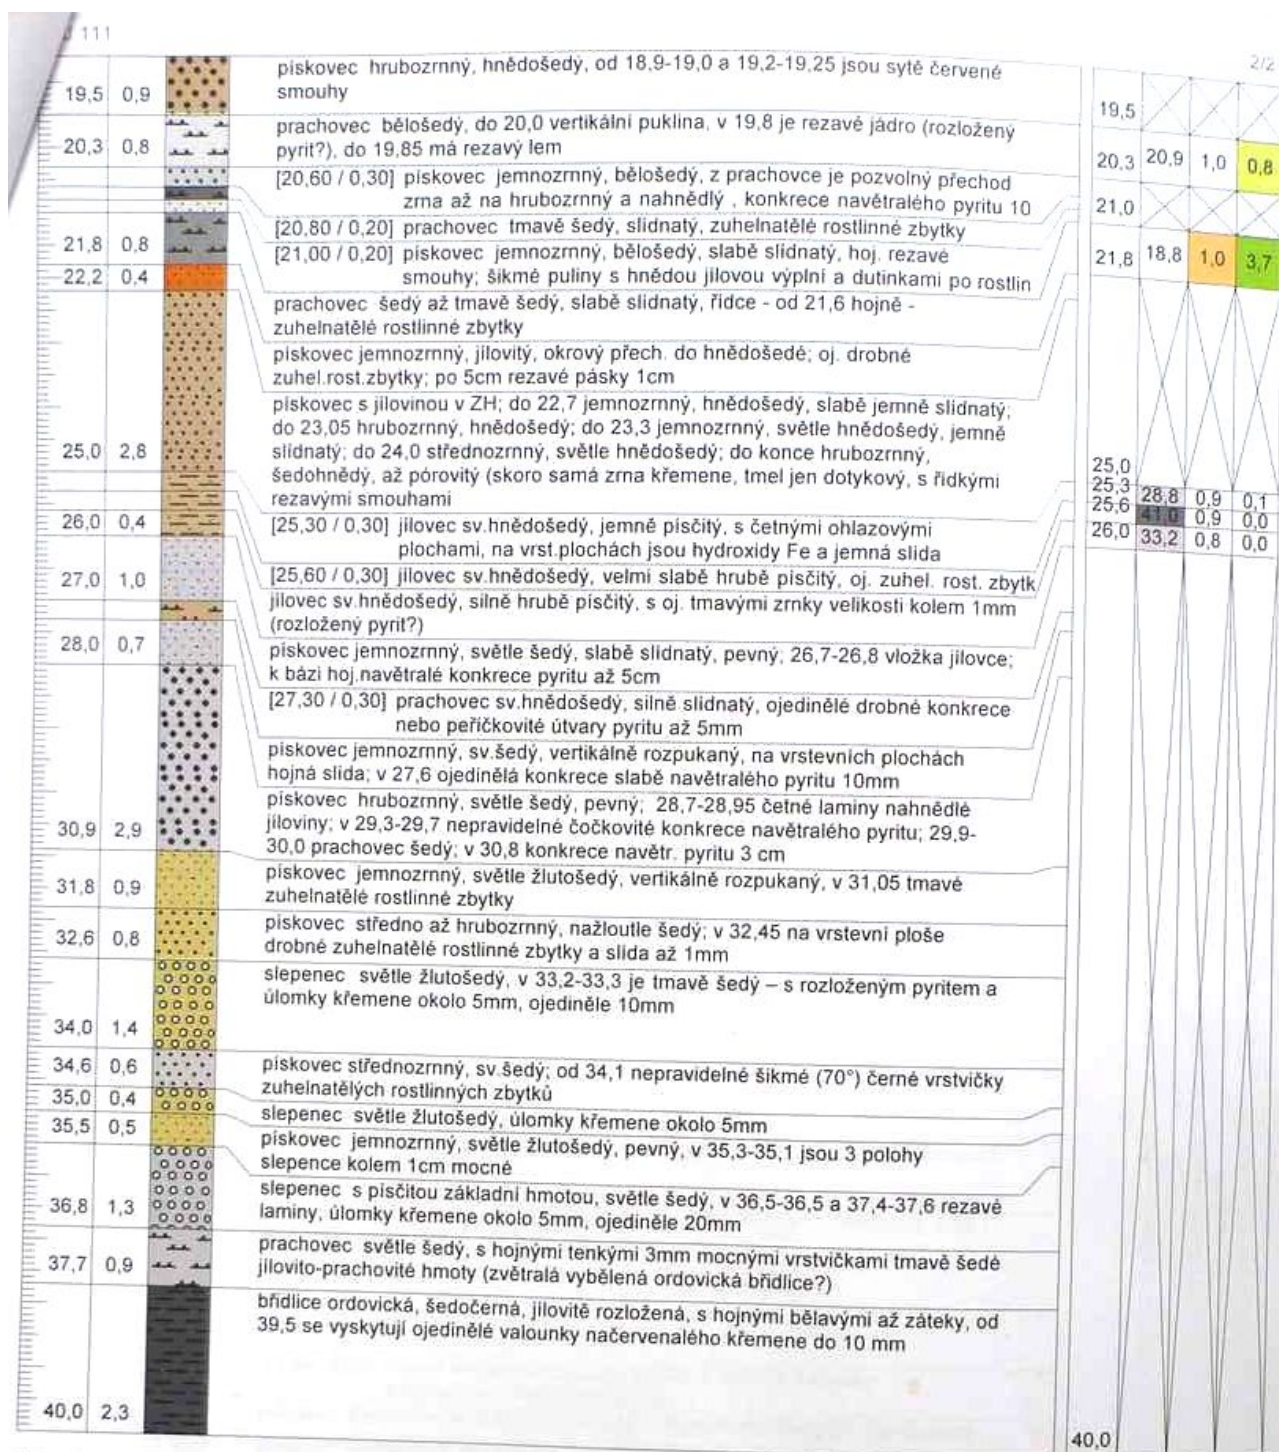 111
2/2
19,5 0,9 pískovec hrubozrnný, hnědošedý, od 18,9-19,0 a 19,2-19,25 jsou sytě červené
smouhy
19,5
20,3 0,8 prachovec bělošedý, do 20,0 vertikální puklina, v 19,8 je rezavé jádro (rozložený
pyrit?), do 19,85 má rezavý lem
20,3 20,9 1,0 0,8
[20,60 / 0,30] pískovec jemnozrnný, bělošedý, z prachovce je pozvolný přechod
zrna až na hrubozrnný a nahnědlý , konkrece navětralého pyritu 10
21,0
[20,80 / 0,20] prachovec tmavě šedý, slídnatý, zuhelnatělé rostlinné zbytky
21,8 0,8 [21,00 / 0,20] pískovec jemnozrnný, bělošedý, slabě slídnatý, hoj. rezavé
smouhy; šikmé puliny s hnědou jílovou výplní a dutinkami po rostlin
21,8 18,8 1,0 3,7
22,2 0,4 prachovec šedý až tmavě šedý, slabě slídnatý, řídce - od 21,6 hojně -
zuhelnatělé rostlinné zbytky
pískovec jemnozrnný, jílovitý, okrový přech. do hnědošedé; oj. drobné
zuhel.rost.zbytky; po 5cm rezavé pásky 1cm
25,0 2,8 pískovec s jílovinou v ZH; do 22,7 jemnozrnný, hnědošedý, slabě jemně slídnatý;
do 23,05 hrubozrnný, hnědošedý; do 23,3 jemnozrnný, světle hnědošedý, jemně
slídnatý; do 24,0 střednozrnný, světle hnědošedý; do konce hrubozrnný,
šedohnědý, až pórovitý (skoro samá zrna křemene, tmel jen dotykový, s řídkými
rezavými smouhami
25,0
25,3 28,8 0,9 0,1
25,6 41,0 0,9 0,0
26,0 33,2 0,8 0,0
26,0 0,4 [25,30 / 0,30] jílovec sv.hnědošedý, jemně písčitý, s četnými ohlazovými
plochami, na vrst.plochách jsou hydroxidy Fe a jemná slída
27,0 1,0 [25,60 / 0,30] jílovec sv.hnědošedý, velmi slabě hrubě písčitý, oj. zuhel. rost. zbytk
jílovec sv.hnědošedý, silně hrubě písčitý, s oj. tmavými zrnky velikosti kolem 1mm
(rozložený pyrit?)
28,0 0,7 pískovec jemnozrnný, světle šedý, slabě slídnatý, pevný; 26,7-26,8 vložka jílovce;
k bázi hoj.navětralé konkrece pyritu až 5cm
[27,30 / 0,30] prachovec sv.hnědošedý, silně slídnatý, ojedinělé drobné konkrece
nebo peříčkovité útvary pyritu až 5mm
pískovec jemnozrnný, sv.šedý, vertikálně rozpukaný, na vrstevních plochách
hojná slída; v 27,6 ojedinělá konkrece slabě navětralého pyritu 10mm
30,9 2,9 pískovec hrubozrnný, světle šedý, pevný; 28,7-28,95 četné laminy nahnědlé
jíloviny; v 29,3-29,7 nepravidelné čočkovité konkrece navětralého pyritu; 29,9-
30,0 prachovec šedý; v 30,8 konkrece navětr. pyritu 3 cm
31,8 0,9 pískovec jemnozrnný, světle žlutošedý, vertikálně rozpukaný, v 31,05 tmavé
zuhelnatělé rostlinné zbytky
32,6 0,8 pískovec středno až hrubozrnný, nažloutle šedý; v 32,45 na vrstevní ploše
drobné zuhelnatělé rostlinné zbytky a slída až 1mm
34,0 1,4 slepenec světle žlutošedý, v 33,2-33,3 je tmavě šedý – s rozloženým pyritem a
úlomky křemene okolo 5mm, ojediněle 10mm
34,6 0,6 pískovec střednozrnný, sv.šedý; od 34,1 nepravidelné šikmé (70°) černé vrstvičky
zuhelnatělých rostlinných zbytků
35,0 0,4 slepenec světle žlutošedý, úlomky křemene okolo 5mm
35,5 0,5 pískovec jemnozrnný, světle žlutošedý, pevný, v 35,3-35,1 jsou 3 polohy
slepence kolem 1cm mocné
36,8 1,3 slepenec s písčitou základní hmotou, světle šedý, v 36,5-36,5 a 37,4-37,6 rezavé
laminy, úlomky křemene okolo 5mm, ojediněle 20mm
37,7 0,9 prachovec světle šedý, s hojnými tenkými 3mm mocnými vrstvičkami tmavě šedé
jílovito-prachovité hmoty (zvětralá vybělená ordovická břidlice?)
40,0 2,3 břidlice ordovická, šedočerná, jílovitě rozložená, s hojnými bělavými až záteky, od
39,5 se vyskytují ojedinělé valounky načervenalého křemene do 10 mm
40,0